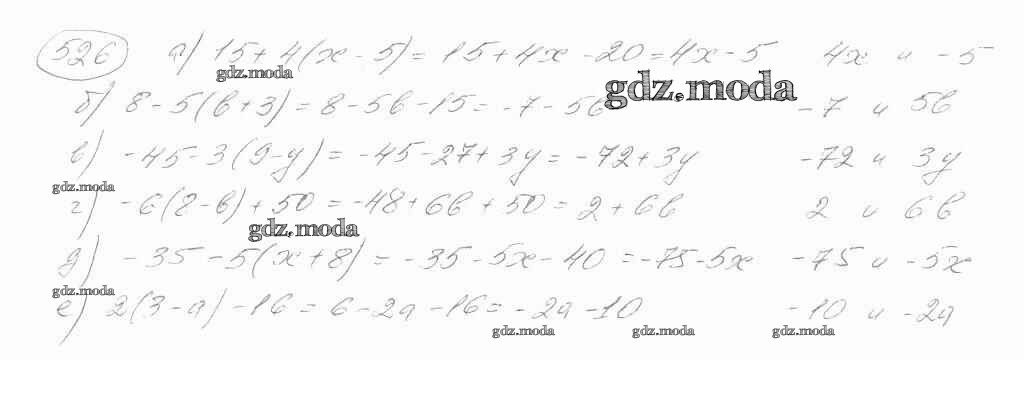 526 а) 15+4(x-5)=15+4x-20=4x-5 4x и -5
gdz.moda
gdz.moda
б) 8-5(b+3)=8-5b-15=-7-5b -7 и 5b
в) -45-3(9-y)=-45-27+3y=-72+3y -72 и 3y
gdz.moda
г) -6(8-b)+50=-48+6b+50=2+6b 2 и 6b
gdz.moda
д) -35-5(x+8)=-35-5x-40=-75-5x -75 и -5x
gdz.moda
е) 2(3-a)-16=6-2a-16=-2a-10 -10 и -2a
gdz.moda gdz.moda gdz.moda